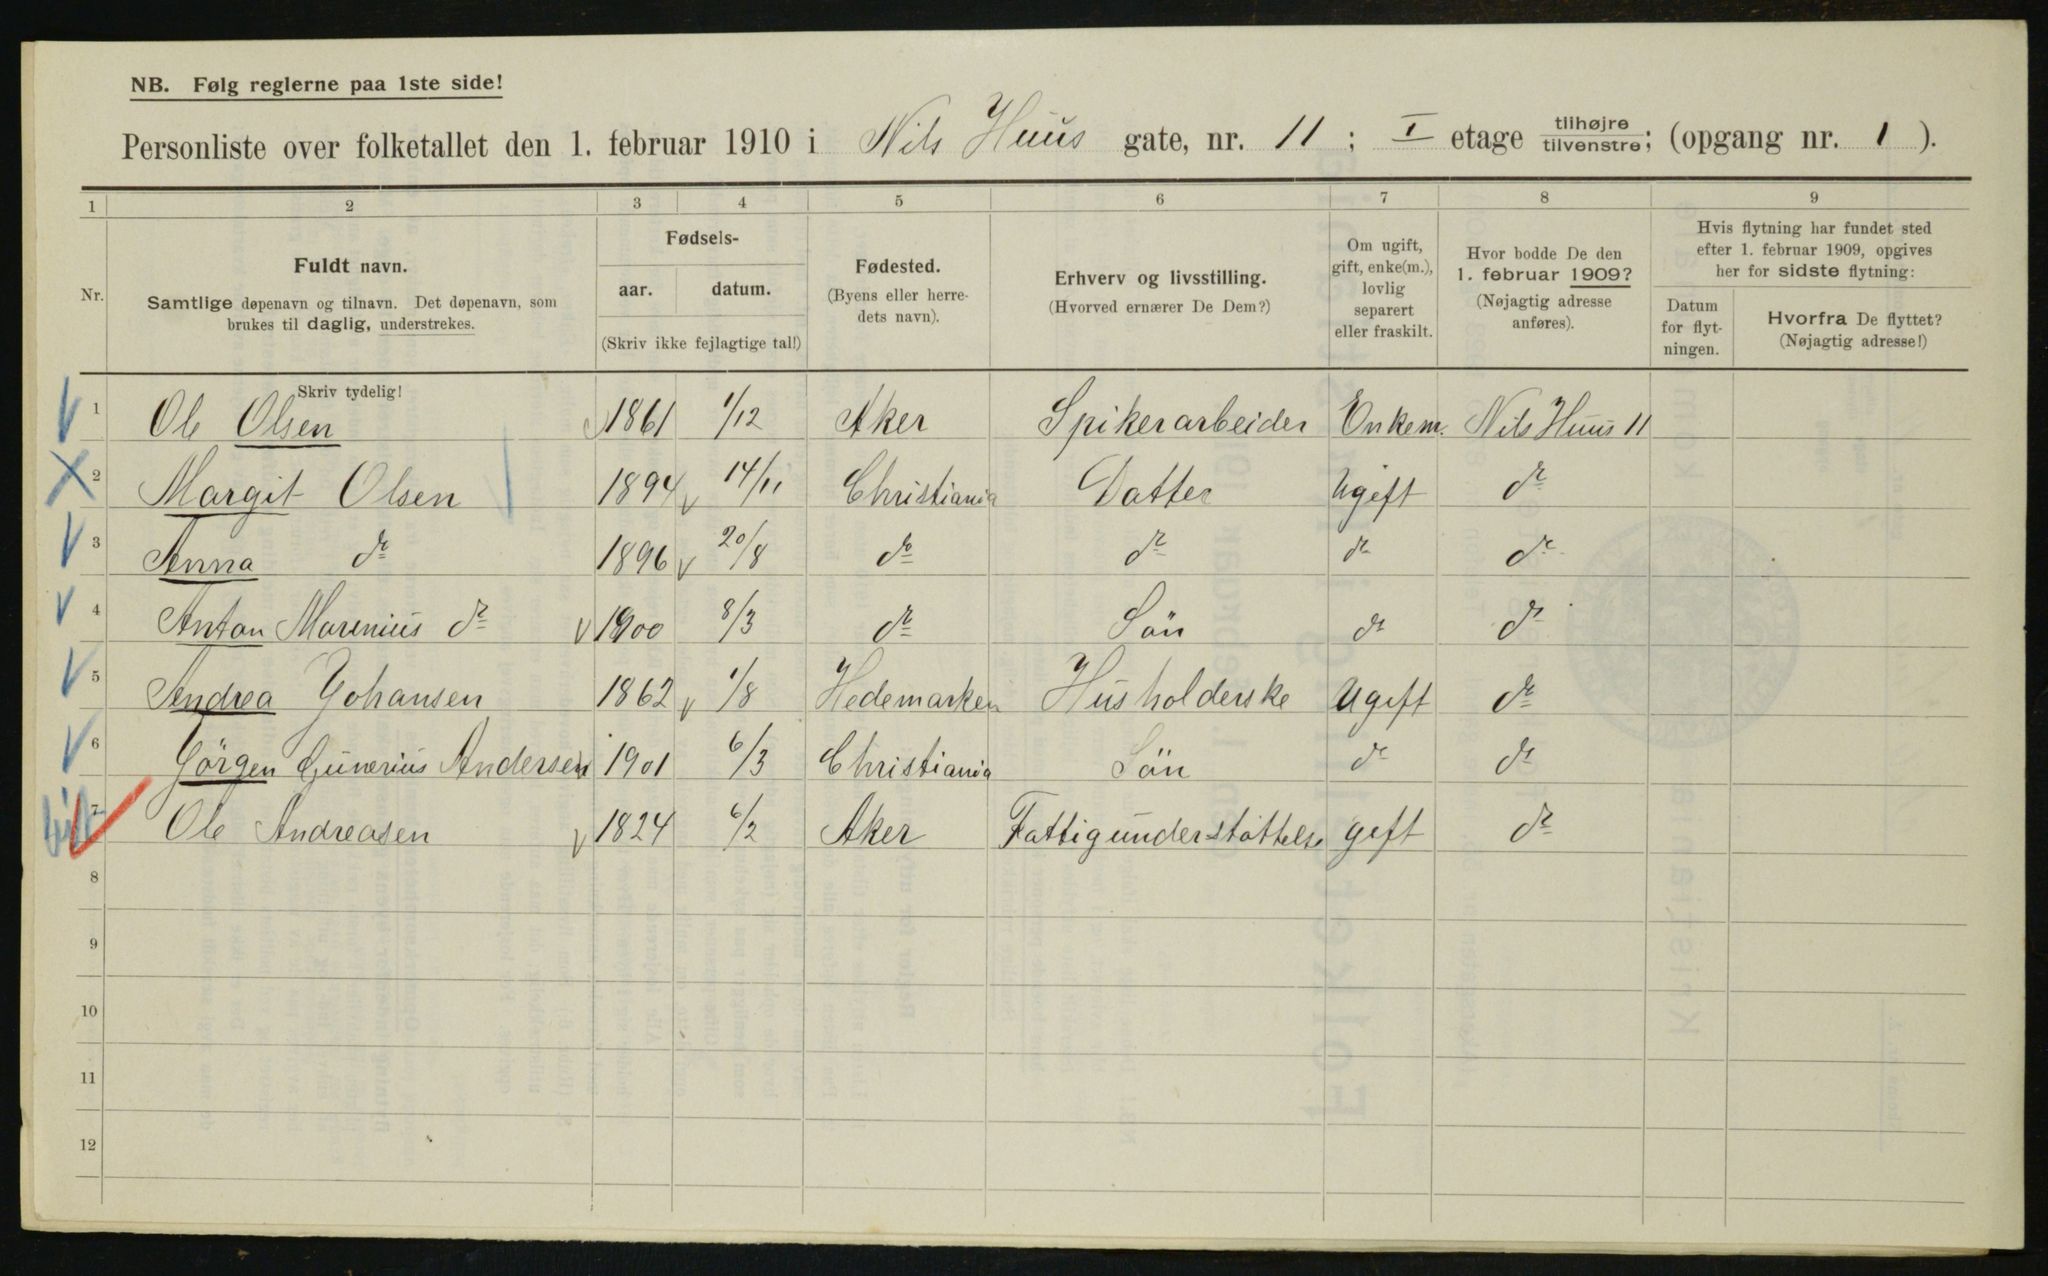 NB. Følg reglerne paa 1ste side!
Personliste over folketallet den 1. februar 1910 i Nils Huus gate, nr. 11; I etage tilhøjre/tilvenstre; (opgang nr. 1).
1 2 3 4 5 6 7 8 9
Nr.
Fuldt navn.
Samtlige døpenavn og tilnavn. Det døpenavn, som
brukes til daglig, understrekes.
Fødsels-
aar. datum.
(Skriv ikke fejlagtige tal!)
Fødested.
(Byens eller herre-
dets navn).
Erhverv og livsstilling.
(Hvorved ernærer De Dem?)
Om ugift,
gift, enke(m.),
lovlig
separert
eller fraskilt.
Hvor bodde De den
1. februar 1909?
(Nøjagtig adresse
anføres).
Hvis flytning har fundet sted
efter 1. februar 1909, opgives
her for sidste flytning:
Datum
for flyt-
ningen.
Hvorfra De flyttet?
(Nøjagtig adresse!)
Skriv tydelig!
1 Ole Olsen 1861 1/12 Aker Spikerarbeider Enkem. Nils Huus 11
2 Margit Olsen 1894 14/11 Christiania Datter Ugift do
3 Anna do 1896 20/8 do do do do
4 Anton Marinius do 1900 8/3 do Sön do do
5 Andrea Johansen 1862 1/8 Hedemarken Husholderske Ugift do
6 Jörgen Gunerius Andersen 1901 6/3 Christiania Sön do do
7 Ole Andreasen 1824 6/2 Aker Fattigunderstøttelse gift do
8
9
10
11
12